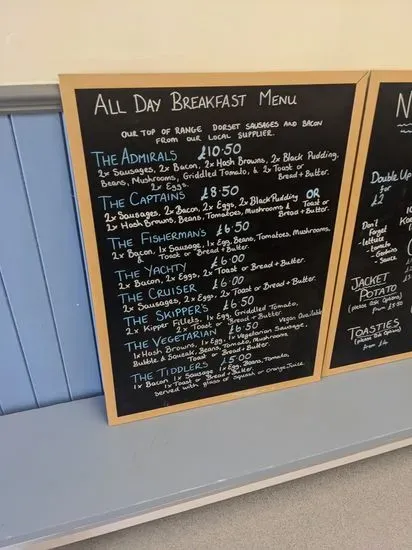 ALL DAY BREAKFAST MENU
OUR TOP OF RANGE DORSET SAUSAGES AND BACON
FROM OUR LOCAL SUPPLIER.
THE ADMIRALS £10.50
2x Sausages, 2x Bacon, 2x Hash Browns, 2x Black Pudding,
Beans, Mushrooms, Griddled Tomato, & 2x Toast or
Bread + Butter.
2x Eggs.
THE CAPTAINS £8.50
2x Sausages, 2x Bacon, 2x Eggs, 2x Black Pudding OR
2x Hash Browns, Beans, Tomatoes, Mushrooms & Toast or
Bread + Butter.
THE FISHERMAN'S £6.50
2x Bacon, 1x Sausage, 1x Egg, Beans, Tomatoes, Mushrooms,
& Toast or Bread + Butter.
THE YACHTY £6.00
2x Bacon, 2x Eggs, 2x Toast or Bread + Butter.
THE CRUISER £6.00
2x Sausages, 2x Eggs, 2x Toast or Bread + Butter.
THE SKIPPER'S £6.50
2x Kipper Fillets, 1x Egg, Griddled Tomato,
2x Toast or Bread + Butter.
THE VEGETARIAN £6.50 Vegan Available
1x Hash Browns, 1x Egg, 1x Vegetarian Sausage,
Bubble & Squeak, Beans, Tomato, Mushrooms
Toast or Bread + Butter.
THE TIDDLERS £5.00
1x Bacon 1x Sausage 1x Egg, Beans, Tomato,
1x Toast or Bread + Butter.
served with glass of Squash or Orange Juice.
N
Double Up
for
£2
Don't
Forget
- lettuce
- tomato
- Gerkins
- Sauce
JACKET
POTATO
(please ask Options)
from £5.50
TOASTIES
(please ask Options)
from £4